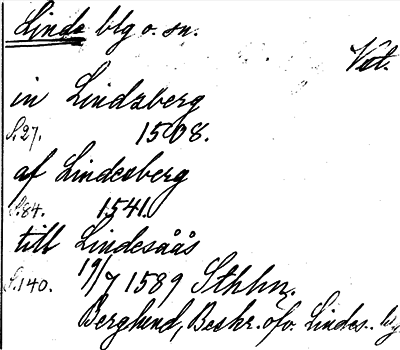 Linde blg o. sn.
Vstl.
in Lindzberg
S.27. 1508.
af Lindesberg
S.84. 1541.
till Lindesåås
S.140. 19/7 1589 Sthlm.
Berglund, Beskr. öfv. Lindes..